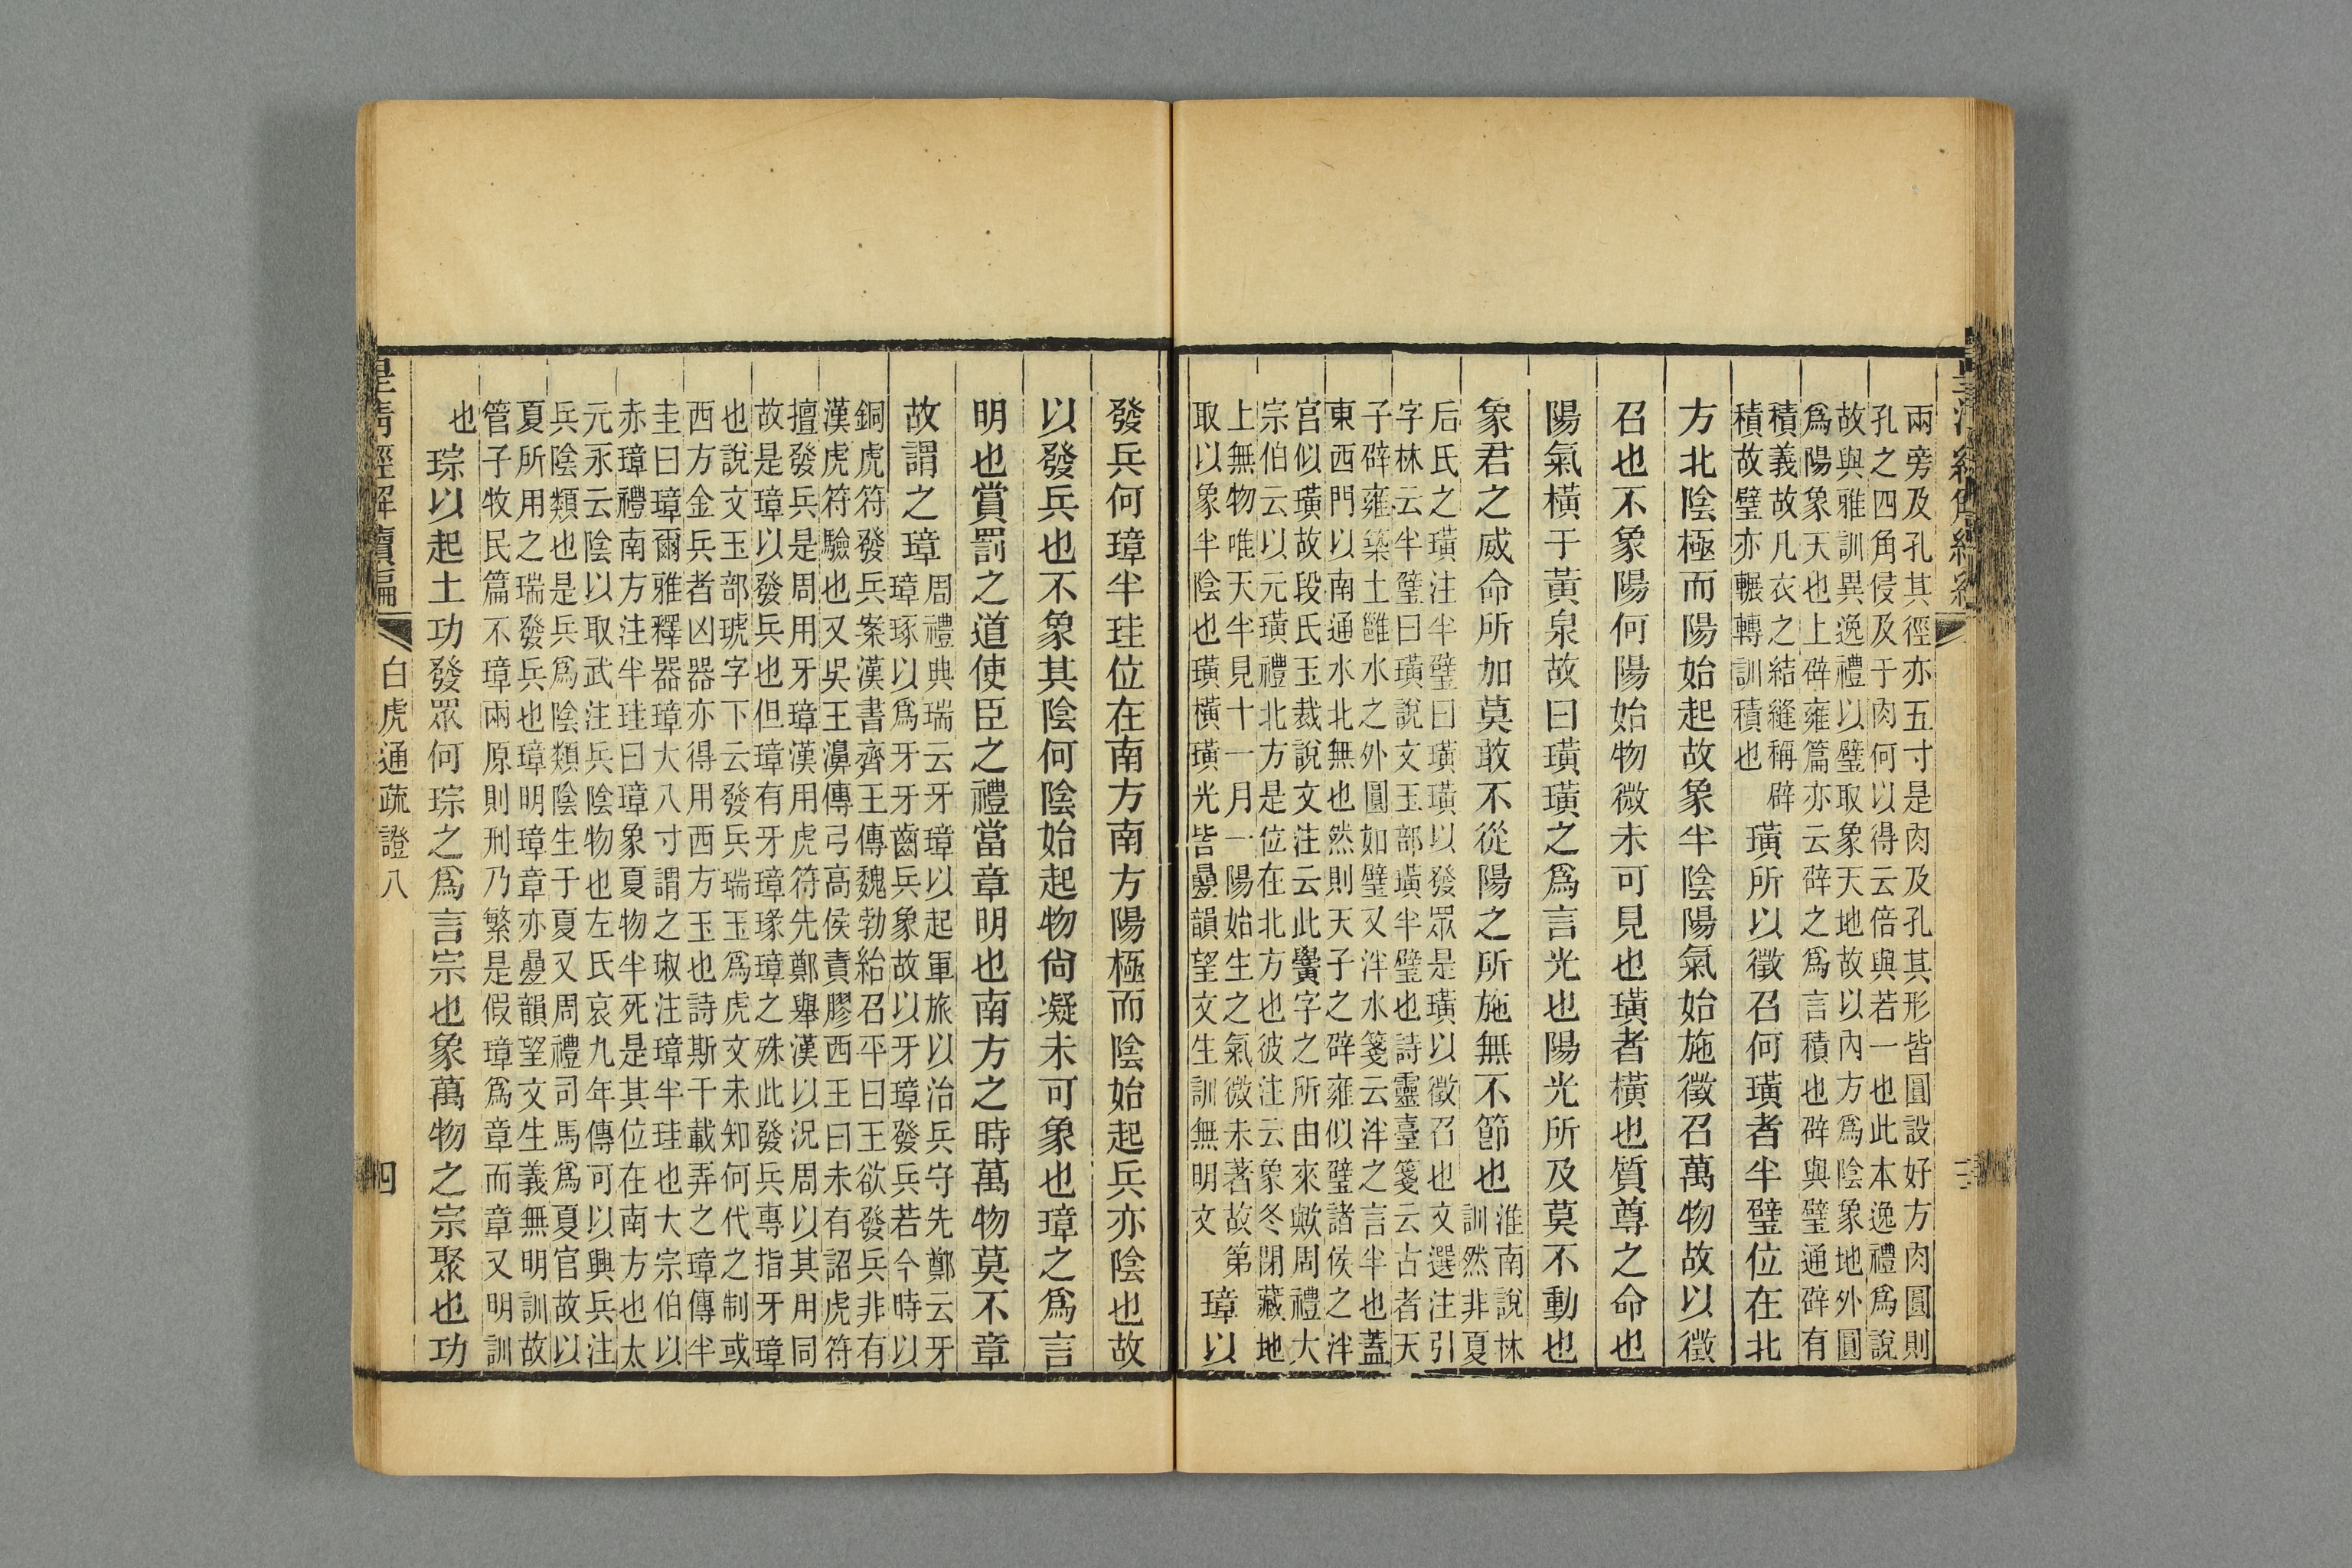 兩旁及孔其徑亦五寸是肉及孔其形皆圓設好方肉圓則
孔之四角侵及于肉何以得云倍與若一也此本逸禮爲說
故與雅訓異逸禮以璧取象天地故以內方爲陰象地外圓
爲陽象天也上辟雍篇亦云辟之爲言積也辟與璧通辟有
積義故凡衣之結縫稱辟
積故璧亦輾轉訓積也
璜所以徵召何璜者半璧位在北
方北陰極而陽始起故象半陰陽氣始施徵召萬物故以徵
召也不象陽何陽始物微未可見也璜者橫也質尊之命也
陽氣橫于黃泉故曰璜璜之爲言光也陽光所及莫不動也
象君之威命所加莫敢不從陽之所施無不節也
淮南說林
訓然非夏
后氏之璜注半璧曰璜璜以發眾是璜以徵召也文選注引
字林云半璧曰璜說文玉部璜半璧也詩靈臺箋云古者天
子辟雍築土雝水之外圓如璧又泮水箋云泮之言半也蓋
東西門以南通水北無也然則天子之辟雍似璧諸侯之泮
宮似璜故段氏玉裁說文注云此黌字之所由來歟周禮大
宗伯云以元璜禮北方是位在北方也彼注云象冬閉藏地
上無物唯天半見十一月一陽始生之氣微未著故第
取以象半陰也璜橫璜光皆疊韻望文生訓無明文
璋以
發兵何璋半珪位在南方南方陽極而陰始起兵亦陰也故
以發兵也不象其陰何陰始起物尙凝未可象也璋之爲言
明也賞罰之道使臣之禮當章明也南方之時萬物莫不章
故謂之璋
周禮典瑞云牙璋以起軍旅以治兵守先鄭云牙
璋琢以爲牙牙齒兵象故以牙璋發兵若今時以
銅虎符發兵案漢書齊王傳魏勃紿召平曰王欲發兵非有
漢虎符驗也又吳王濞傳弓高侯責膠西王曰未有詔虎符
擅發兵是周用牙璋漢用虎符先鄭舉漢以況周以其用同
故是璋以發兵也但璋有牙璋瑑璋之殊此發兵專指牙璋
也說文玉部琥字下云發兵瑞玉爲虎文未知何代之制或
西方金兵者凶器亦得用西方玉也詩斯干載弄之璋傳半
圭曰璋爾雅釋器璋大八寸謂之琡注璋半珪也大宗伯以
赤璋禮南方注半珪曰璋象夏物半死是其位在南方也太
元永云陰以取武注兵陰物也左氏哀九年傳可以興兵注
兵陰類也是兵爲陰類陰生于夏又周禮司馬爲夏官故以
夏所用之瑞發兵也璋明璋章亦疊韻望文生義無明訓故
管子牧民篇不璋兩原則刑乃繁是假璋爲章而章又明訓
也
琮以起土功發眾何琮之爲言宗也象萬物之宗聚也功
皇清經解續編
白虎通疏證八
四